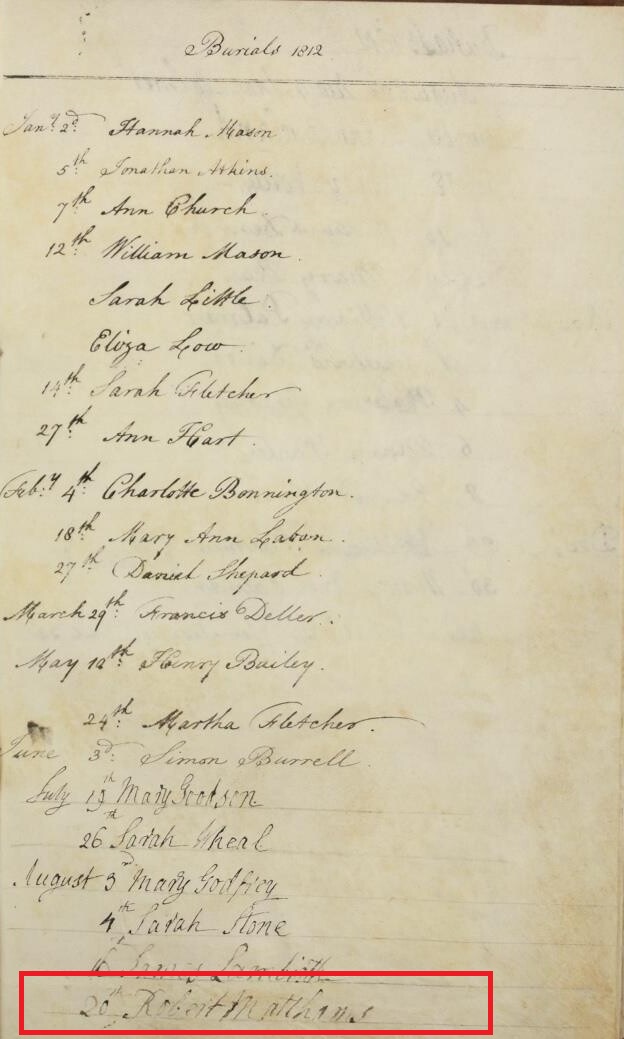 Burials 1812
Jany 2d Hannah Mason
5th Jonathan Atkins.
7th Ann Church.
12th William Mason.
Sarah Little.
Eliza Low.
14th Sarah Fletcher
27th Ann Hart.
Feby 4th Charlotte Bonnington.
18th Mary Ann Laban.
27th Daniel Shepard.
March 29th Francis Deller.
May 12th Henry Bailey.
24th Martha Fletcher.
June 3d Simon Burrell.
July 19th Mary Goodson.
26th Sarah Wheal
August 3rd Mary Godfrey
4th Sarah Stone
James
20th Robert Matthams